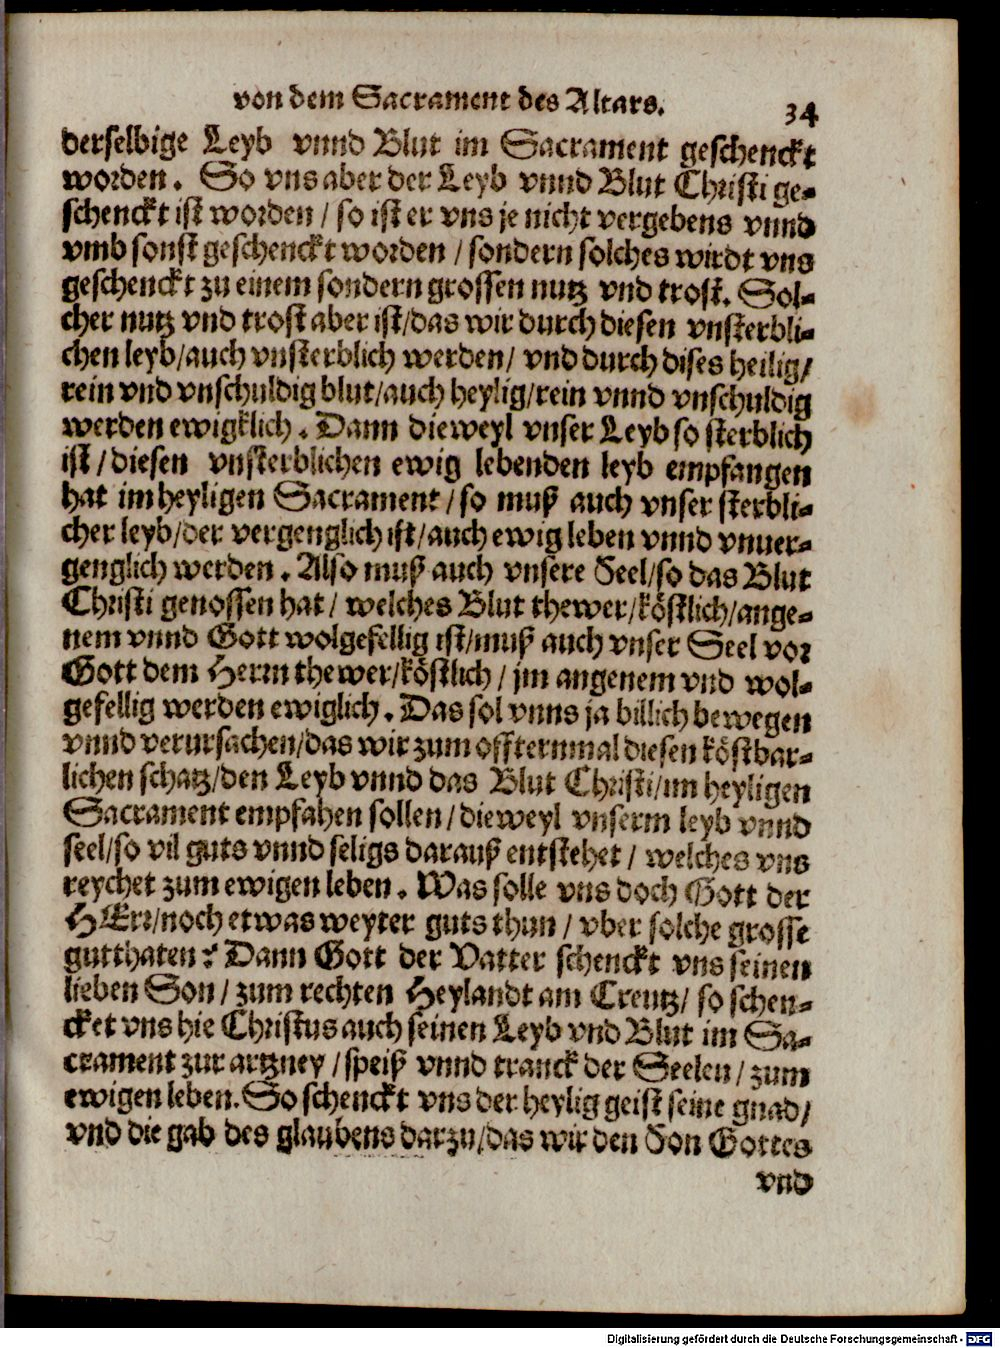 von dem Sacrament des Altars. 34
derselbige Leyb vnnd Blut im Sacrament geschenckt
worden. So vns aber der Leyb vnnd Blut Christi ge-
schenckt ist worden / so ist er vns je nicht vergebens vnnd
vmb sonst geschenckt worden / sondern solches wirdt vns
geschenckt zu einem sondern grossen nutz vnd trost. Sol-
cher nutz vnd trost aber ist/das wir durch diesen vnsterbli-
chen leyb/auch vnsterblich werden/ vnd durch dises heilig/
rein vnd vnschuldig blut/auch heylig/rein vnnd vnschuldig
werden ewigklich. Dann dieweyl vnser Leyb so sterblich
ist / diesen vnsterblichen ewig lebenden leyb empfangen
hat im heyligen Sacrament / so muß auch vnser sterbli-
cher leyb/der vergenglich ist/auch ewig leben vnnd vnuer-
genglich werden. Also muß auch vnsere Seel/so das Blut
Christi genossen hat / welches Blut thewer/köstlich/ange-
nem vnnd Gott wolgefellig ist/muß auch vnser Seel vor
Gott dem Herrn thewer/köstlich / jm angenem vnd wol-
gefellig werden ewiglich. Das sol vnns ja billich bewegen
vnnd verursachen/das wir zum offternmal diesen köstbar-
lichen schatz/den Leyb vnnd das Blut Christi/im heyligen
Sacrament empfahen sollen / dieweyl vnserm leyb vnnd
seel/so vil guts vnnd seligs darauß entstehet / welches vns
reychet zum ewigen leben. Was solle vns doch Gott der
HErr/noch etwas weyter guts thun / vber solche grosse
gutthaten? Dann Gott der Vatter schenckt vns seinen
lieben Son / zum rechten Heylandt am Creutz/ so schen-
cket vns hie Christus auch seinen Leyb vnd Blut im Sa-
crament zur artzney / speiß vnnd tranck der Seelen / zum
ewigen leben. So schenckt vns der heylig geist seine gnad/
vnd die gab des glaubens darzu/das wir den Son Gottes
vnd
Digitalisierung gefördert durch die Deutsche Forschungsgemeinschaft - DFG